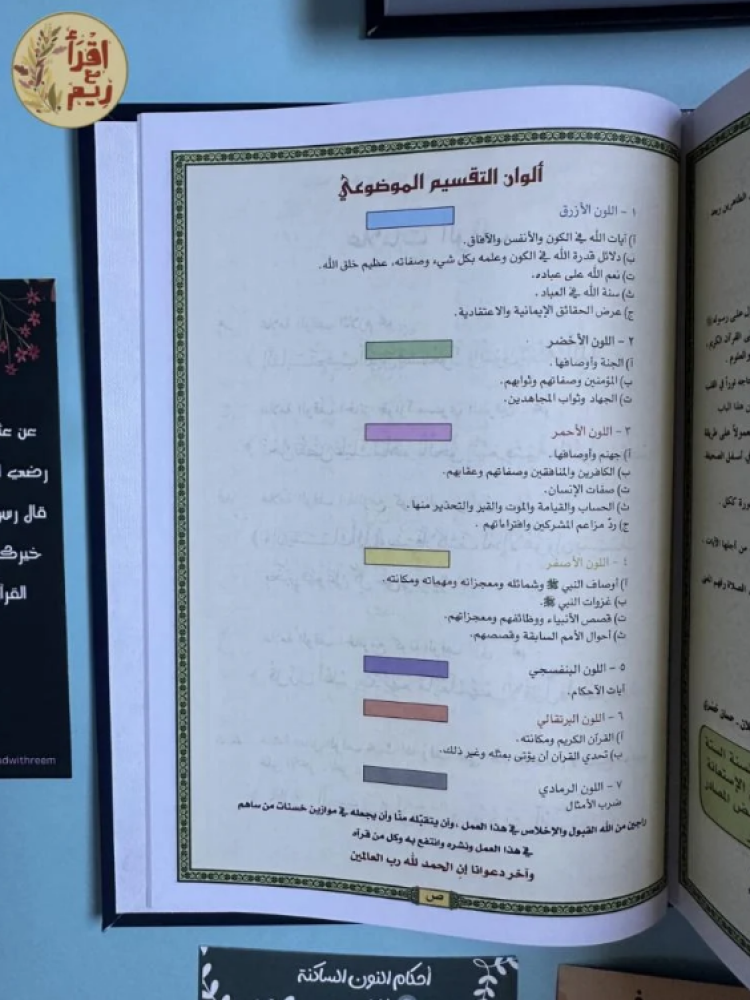 اقرأ
مع
ريم
ألوان التقسيم الموضوعي
١ - اللون الأزرق
أ) آيات الله في الكون والأنفس والآفاق.
ب) دلائل قدرة الله في الكون وعلمه بكل شيء وصفاته، عظيم خلق الله.
ت) نعم الله على عباده.
ث) سنة الله في العباد.
ج) عرض الحقائق الإيمانية والاعتقادية.
٢ - اللون الأخضر
أ) الجنة وأوصافها.
ب) المؤمنين وصفاتهم وثوابهم.
ت) الجهاد وثواب المجاهدين.
٣ - اللون الأحمر
أ) جهنم وأوصافها.
ب) الكافرين والمنافقين وصفاتهم وعقابهم.
ت) صفات الإنسان.
ث) الحساب والقيامة والموت والقبر والتحذير منها.
ج) ردّ مزاعم المشركين وافتراءاتهم.
٤ - اللون الأصفر
أ) أوصاف النبي ﷺ وشمائله ومعجزاته ومهماته ومكانته.
ب) غزوات النبي ﷺ.
ت) قصص الأنبياء ووظائفهم ومعجزاتهم.
ث) أحوال الأمم السابقة وقصصهم.
٥ - اللون البنفسجي
آيات الأحكام.
٦ - اللون البرتقالي
أ) القرآن الكريم ومكانته.
ب) تحدي القرآن أن يؤتى بمثله وغير ذلك.
٧ - اللون الرمادي
ضرب الأمثال
راجين من الله القبول والإخلاص في هذا العمل، وأن يتقبّله منّا وأن يجعله في موازين حسنات من ساهم
في هذا العمل ونشره وانتفع به وكل من قرأه
وآخر دعوانا إن الحمد لله رب العالمين
ص
رضي
قال
أحكام النون الساكنة